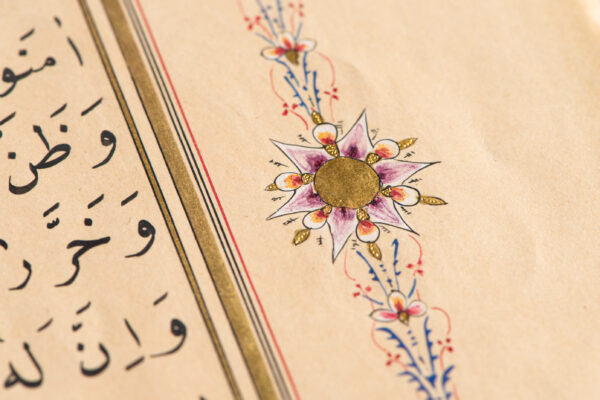 اٰمَنُو
وَظَنَّ
وَخَرَّ
وَاِنَّ لَهُ